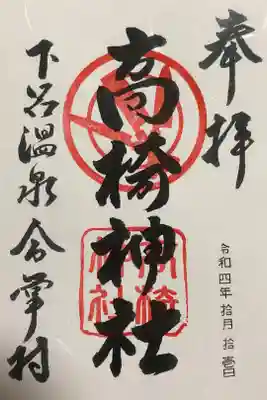 奉拝
高椅神社
下呂温泉 合掌村
令和四年 拾月 拾壹日
高椅
神社